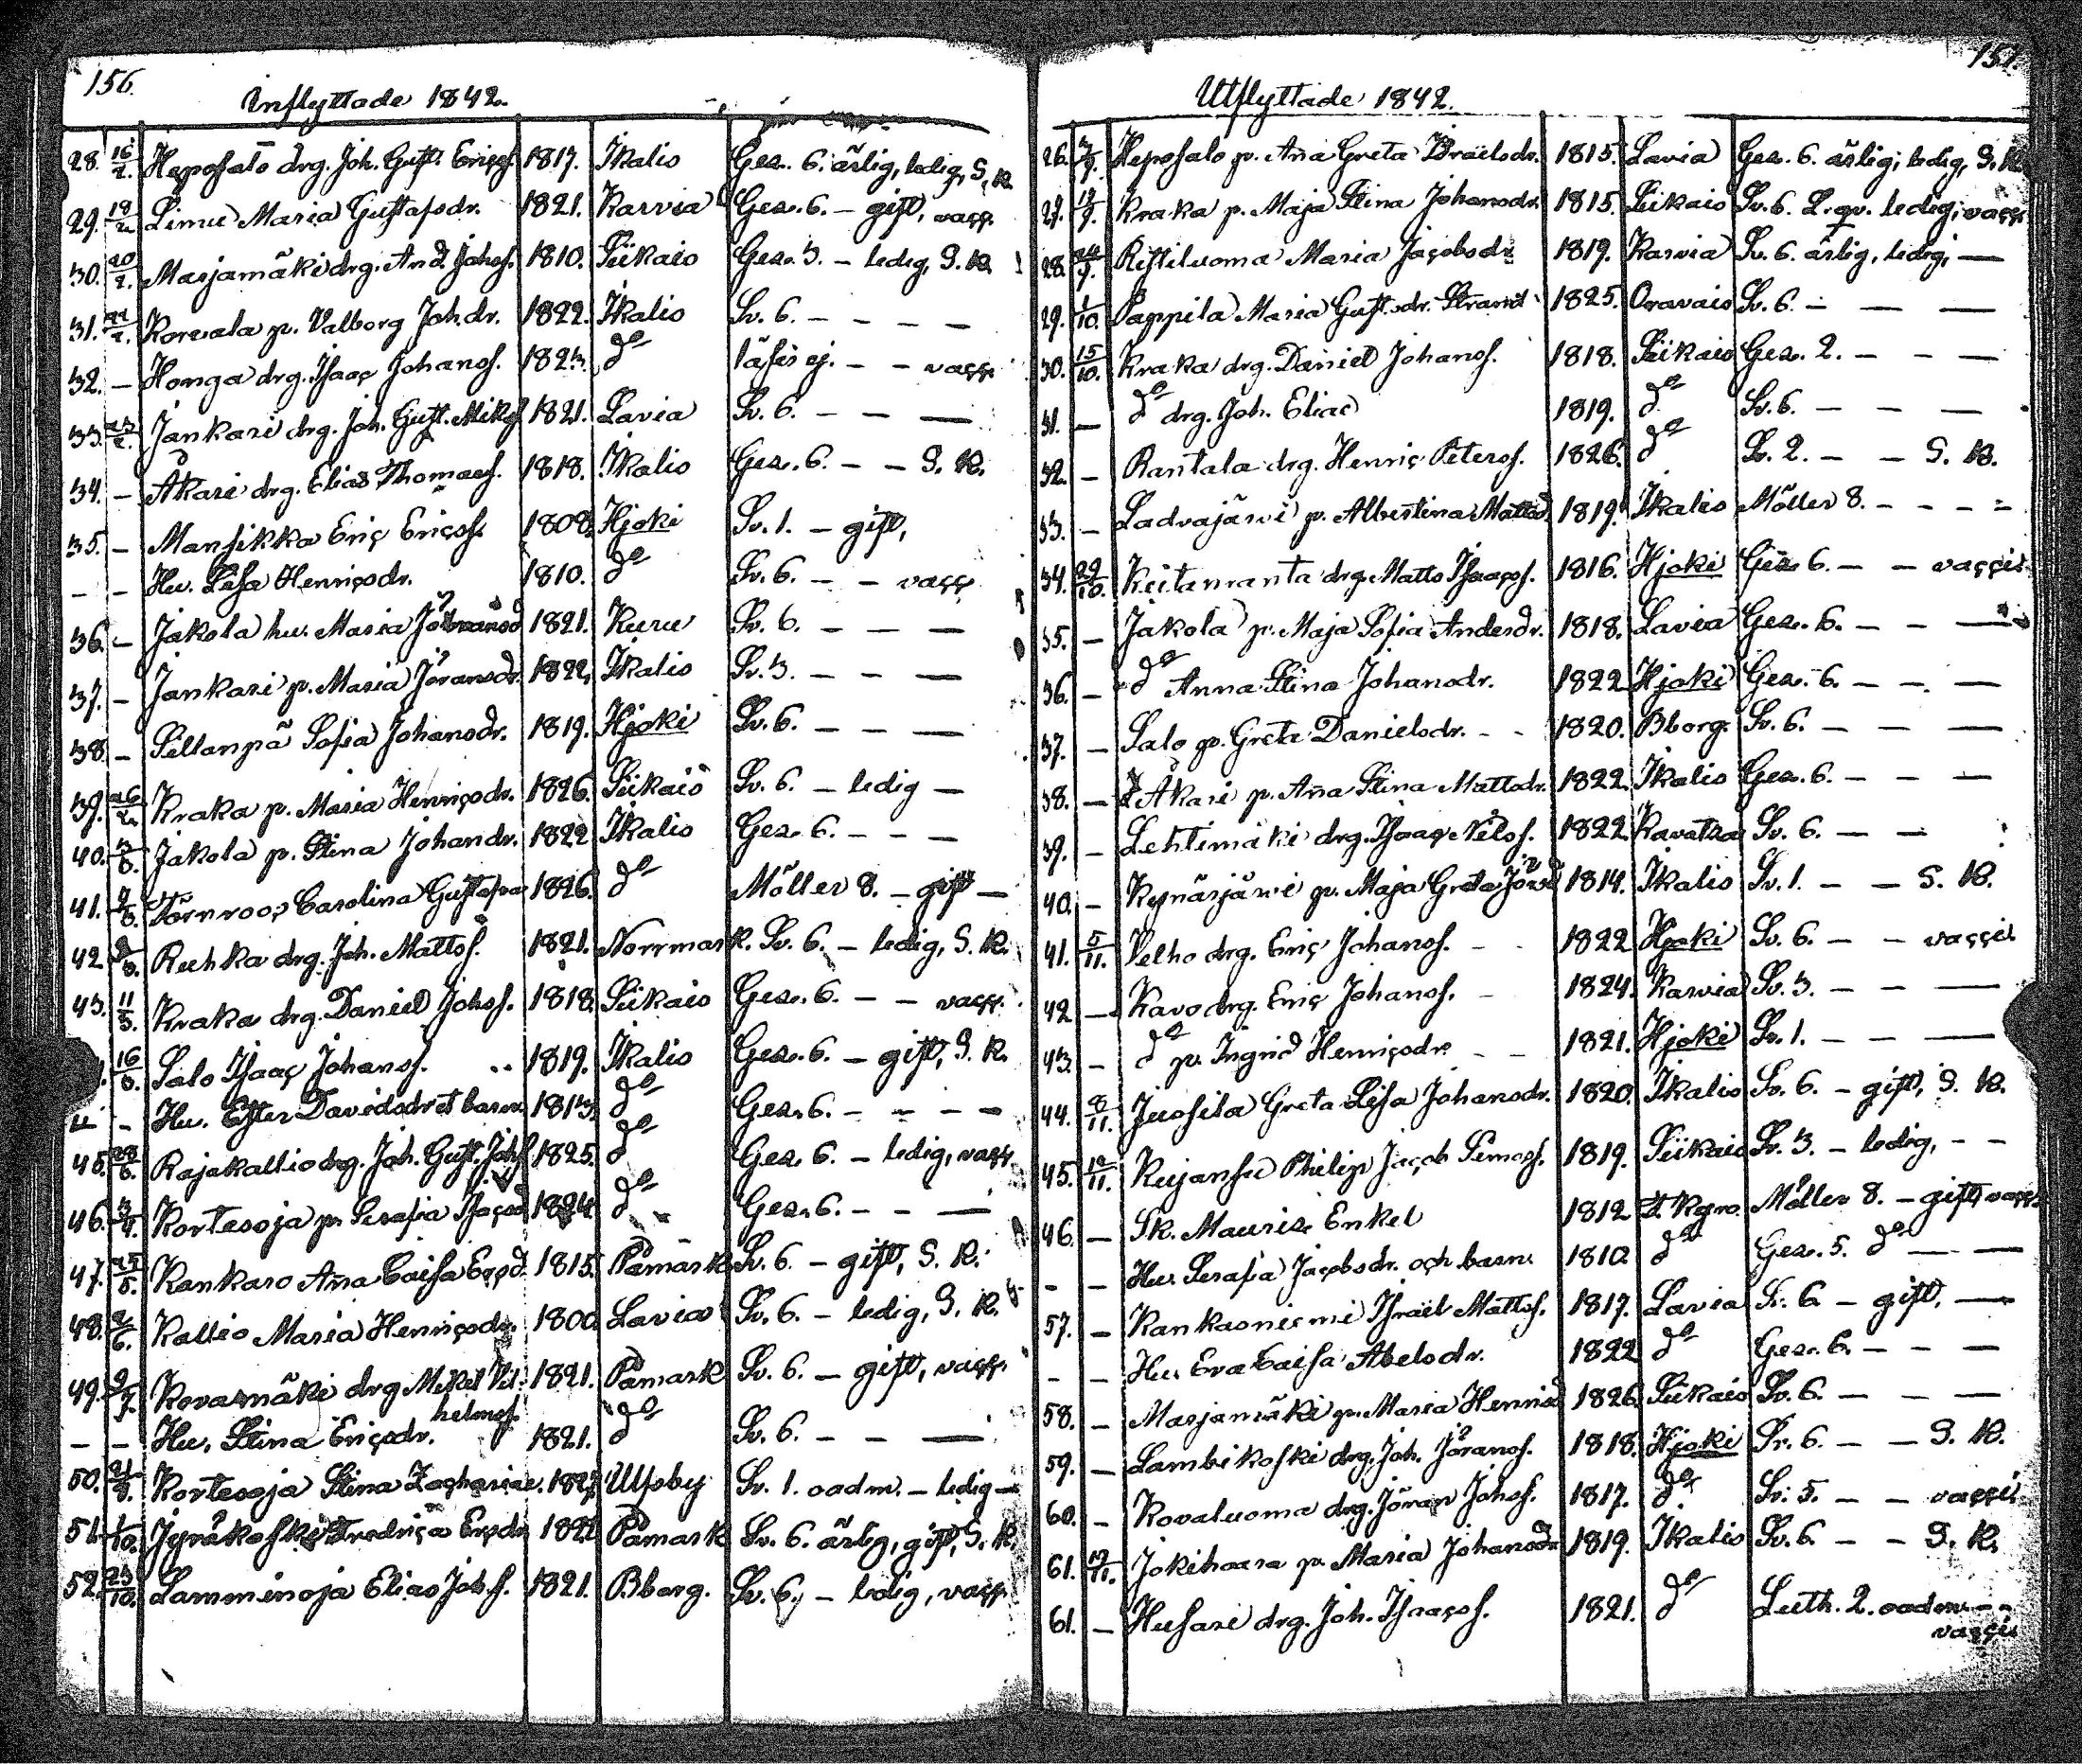 156.
Inflyttade 1842.
28. 16/2. Heposalo drg. Joh. Gust. Ericss. 1817. Ikalis Gez. 6. ärlig, ledig, S. K.
29. 18/2 Limu Maria Gustafsdr. 1821. Karvia Gez. 6. – gift, vacc.
30. 20/2. Marjamäki drg. And. Johss. 1810. Siikais Gez. 3. – ledig, S. K.
31. 22/2. Korvala p. Valborg Joh.dr. 1822. Ikalis Sv. 6. – – – –
32. – Honga drg. Isaac Johanss. 1823. do läser ej. – – vacc.
33. 23/2. Jankari drg. Joh. Gust. Mikss. 1821. Lavia Sv. 6. – – —
34. – Åkari drg. Elias Thomass. 1818. Ikalis Gez. 6. – – S. K.
35. – Mansikka Eric Ericss. 1808. Hjoki Sv. 1. – gift,
– – Hu. Lisa Henricsdr. 1810. do Sv. 6. – – vacc.
36. – Jakola hu. Maria Jöransd. 1821. Kuru Sv. 6. – – —
37. – Jankari p. Maria Jöransdr. 1822. Ikalis Sv. 3. – – —
38. – Sillanpä Sofia Johansdr. 1819. Hjoki Sv. 6. – – —
39. 26/2. Kraka p. Maria Henricsdr. 1826. Siikais Sv. 6. – ledig —
40. 3/3. Jakola p. Stina Johandr. 1822 Ikalis Gez. 6. – – —
41. Törnroos Carolina 1826. do Möller 8. – gift —
42. Ruhka drg. Joh. Mattss. 1821. Norrmark. Sv. 6. – ledig, S. K.
43. 11/3. Kraka drg. Daniel Johss. 1818. Siikais Gez. 6. – – vacc.
16/3. Salo Isaac Johanss. 1819. Ikalis Gez. 6. – gift, S. K.
– Hu. Ester Davidsdr et barn 1813. do Gez. 6. – – – –
45. 28/3. Rajakallio drg. Joh. Gust. Johss. 1825. do Gez. 6. – ledig, vacc.
46. 3/4. Kortesoja p. Serafia Isacsd. 1824. do Gez. 6. – – —
47. 25/5. Kankaro Aña Caisa Ericsd. 1815. Påmark Sv. 6. – gift, S. K.
48. 2/6. Kallio Maria Henricsdr. 1800. Lavia Sv. 6. – ledig, S. K.
49. Kovasmäki drg Mikel Vil- 1821. Påmark Sv. 6. – gift, vacc.
helmss.
– – Hu. Stina Ericsdr. 1821. do Sv. 6. – – —
50. Kortesoja Stina Zachariae. Ulfsby Sv. 1. oadm. – ledig –
51. 1/10. Jyräkoski Fredrica Ericsdr. Påmark Sv. 6. ärlig, gift, S. K.
52. 23/10. Lamminoja Elias Johss. 1821. Bborg. Sv. 6. – ledig, vacc.
Utflyttade 1842.
26. 7/9. Heposalo p. Aña Greta Israelsdr. 1815. Lavia Gez. 6. ärlig, ledig, S. K.
Kraka p. Maja Stina Johansdr. 1815. Siikais Sv. 6. ledig, vacc.
28. 24/9. Ristiluoma Maria Jacobsdr. 1819. Karvia Sv. 6. ärlig, ledig, —
29. 1/10. Pappila Maria Gust.sdr. Strand 1825. Oravais Sv. 6. – — —
30. 15/10. Kraka drg. Daniel Johanss. 1818. Siikais Gez. 2. – – —
31. – do drg. Joh. Elias 1819. do Sv. 6. – – —
32. – Rantala drg. Henric Peterss. 1826. do Sv. 2. – – S. K.
33. – Ladvajärvi p. Albertina Mattsd. 1819. Ikalis Möller 8. – – –
34. 29/10. Keitanranta drg. Matts Isaacss. 1816. Hjoki Gez. 6. – – vaccis
35. – Jakola p. Maja Sofia Andersdr. 1818. Lavia Gez. 6. – – —
36. – do Anna Stina Johansdr. 1822 Hjoki Gez. 6. – – —
37. – Salo p. Greta Danielsdr. – – 1820. Bborg. Sv. 6. – — —
38. – Åkari p. Aña Stina Mattsdr. 1822. Ikalis Gez. 6. – – —
39. – Lehtimäki drg. Isaac Nilss. 1822. Ravatsa Sv. 6. — —
40. – Kynärjärvi p. Maja Greta 1814. Ikalis Sv. 1. – – S. K.
41. 5/11. Velho drg. Eric Johanss. – – 1822 Hjoki Sv. 6. – – vaccis
42 – Kavo drg. Eric Johanss. – 1824. Karvia Sv. 3. – – —
43. – do p. Ingrid Henricsdr. – – 1821. Hjoki Sv. 1. – – —
44. 8/11. Juosila Greta Lisa Johansdr. 1820. Ikalis Sv. 6. – gift, S. K.
45. 12/11. Kujansu Philip Jacob Simass. 1819. Siikais Sv. 3. – ledig, – –
46. – Sk. Mauriz Enkel 1812 Möller 8. – gift, vacc.
– – Hu. Serafia Jacobsdr. och barn. 1810. do Gez. 5. do — —
57. – Kankasniemi Israel Mattss. 1817. Lavia Sv. 6 – gift, —
– – Hu. Eva Caisa Abelsdr. 1822 do Gez. 6. – – —
58. – Marjamäki p. Maria Henricsd. 1826 Siikais Sv. 6. – – —
59. – Lambikoski drg. Joh. Jöranss. 1818. Hjoki Sv. 6. – – S. K.
60. – Kovaluoma drg. Jöran Johss. 1817. do Sv. 5. – – vaccis
61. 19/11. Jokihaara p. Maria Johansdr. 1819. Ikalis Sv. 6. – – S. K.
61. – Husari drg. Joh. Isaacss. 1821. do Luth. 2. oadm. – –
vaccis